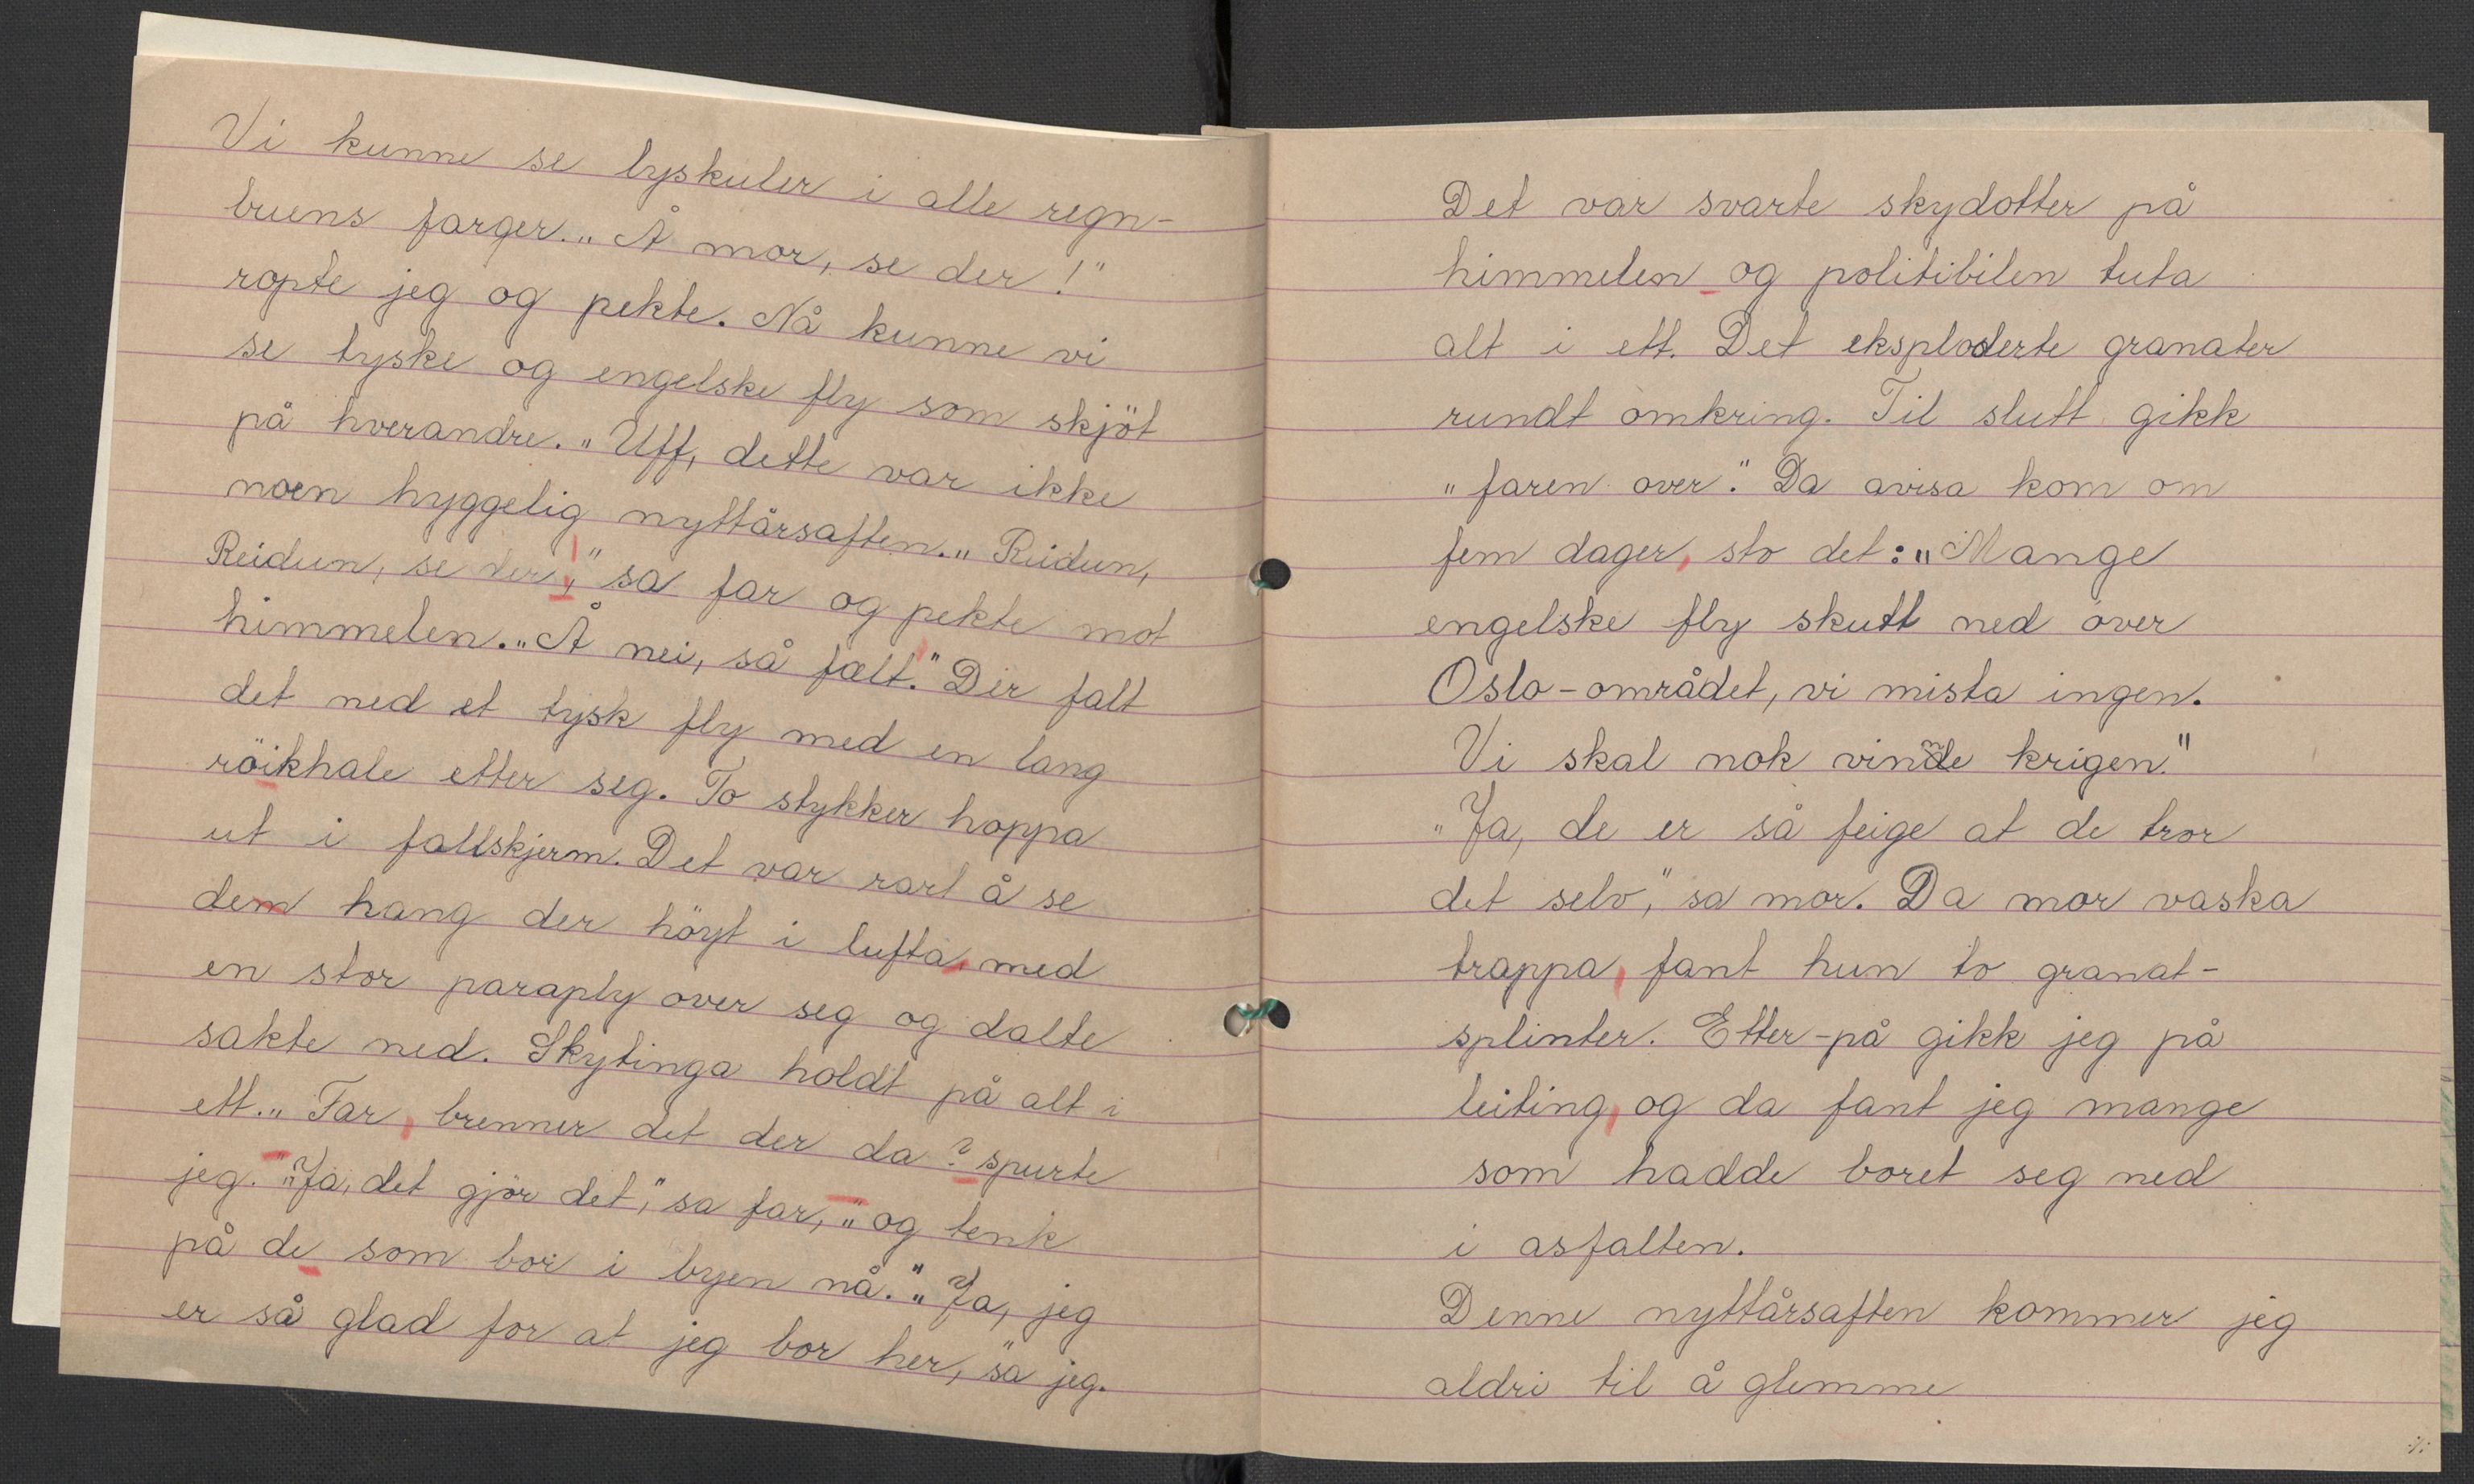 Vi kunne se lyskuler i alle regn-
buens farger. „Å mor, se der!"
ropte jeg og pekte. Nå kunne vi
se tyske og engelske fly som skjöt
på hverandre. „Uff, dette var ikke
noen hyggelig nyttårsaften. „Reidun,
Reidun, se der!," sa far og pekte mot
himmelen. „Å nei, så fælt." Der falt
det ned et tysk fly med en lang
röikhale etter seg. To stykker hoppa
ut i fallskjerm. Det var rart å se
dem hang der höyt i lufta, med
en stor paraply over seg og dalte
sakte ned. Skytinga holdt på alt i
ett. „Far, brenner det der da? spurte
jeg. „Ja, det gjör det," sa far, „og tenk
på de som bor i byen nå." „Ja, jeg
er så glad for at jeg bor her," sa jeg.
Det var svarte skydotter på
himmelen og politibilen tuta
alt i ett. Det eksploderte granater
rundt omkring. Til slutt gikk
„faren over". Da avisa kom om
fem dager, sto det: „Mange
engelske fly skutt ned over
Oslo-området, vi mista ingen.
Vi skal nok vinne krigen."
„Ja, de er så feige at de tror
det selv," sa mor. Da mor vaska
trappa, fant hun to granat-
splinter. Etter-på gikk jeg på
leiting, og da fant jeg mange
som hadde boret seg ned
i asfalten.
Denne nyttårsaften kommer jeg
aldri til å glemme